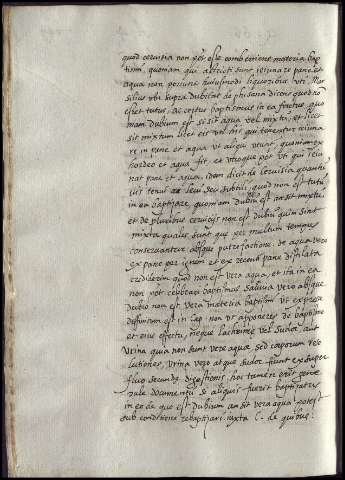 quod cervisia non pot esse conveniens materia bap
tismi, quoniam qui astricti sunt ieiunare pane et
aqua non possunt huiusmodi liquoribus uti. Mar
silius ubi supra dubitat de phisana dicens quod non
esset tutus, ac certus baptismus in ea factus, quo
niam dubium est si sit aqua vel mixta, et licet
sit mixtum licet eis vel his qui tenentur ieiuna
re in pane et aqua ut aliqui vivunt, quoniam ex
hordeo et aqua fit, et utroque pot uti qui ieiu
nat pane et aqua. idem dicit de cervisia quanti
vis tenui ac leni seu subtili quod non est tutum
in ea baptizare, quoniam dubium est an sit mixta,
et de pluribus cervisiis non est dubium quin sint
mixta quales sunt que per multum tempus
conservantur absque putrefactione. de aqua vero
ex pane per ignem et ex recenti pane distilata
crediderim quod non est vera aqua, et ita in ea
non pot celebrari baptismus. saliva vero absque
dubio non est vera materia baptismi ut expresse
diffinitum est in cap. non ut apponeres de baptismo
et eius effectu, neque lachrime vel sudor aut
urina quia non sunt vera aqua sed corporum reso
lutiones, urina vero atque sudor fiunt ex super
fluo secunde digestionis, hoc tamen erit gene
rale documentum si aliquis fuerit baptizatus
in eo de quo est dubium an sit vera aqua potest
sub conditione rebaptizari iuxta c. de quibus.